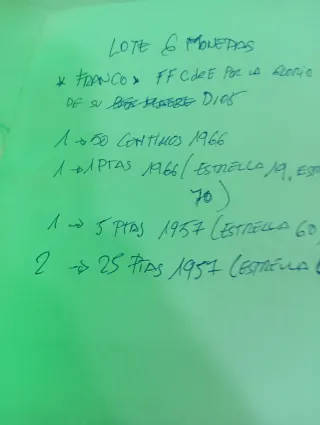 LOTE 6 MONEDAS
* FRANCO * FF CDRE POR LA GLORIO
DE SU DIOS
1 → 50 CONTIMOS 1966
1 → 1 PTAS 1966 (ESTRELLA 19, ESP
70)
1 → 5 PTAS 1957 (ESTRELLA 60
2 → 25 PTAS 1957 (ESTRELLA 6